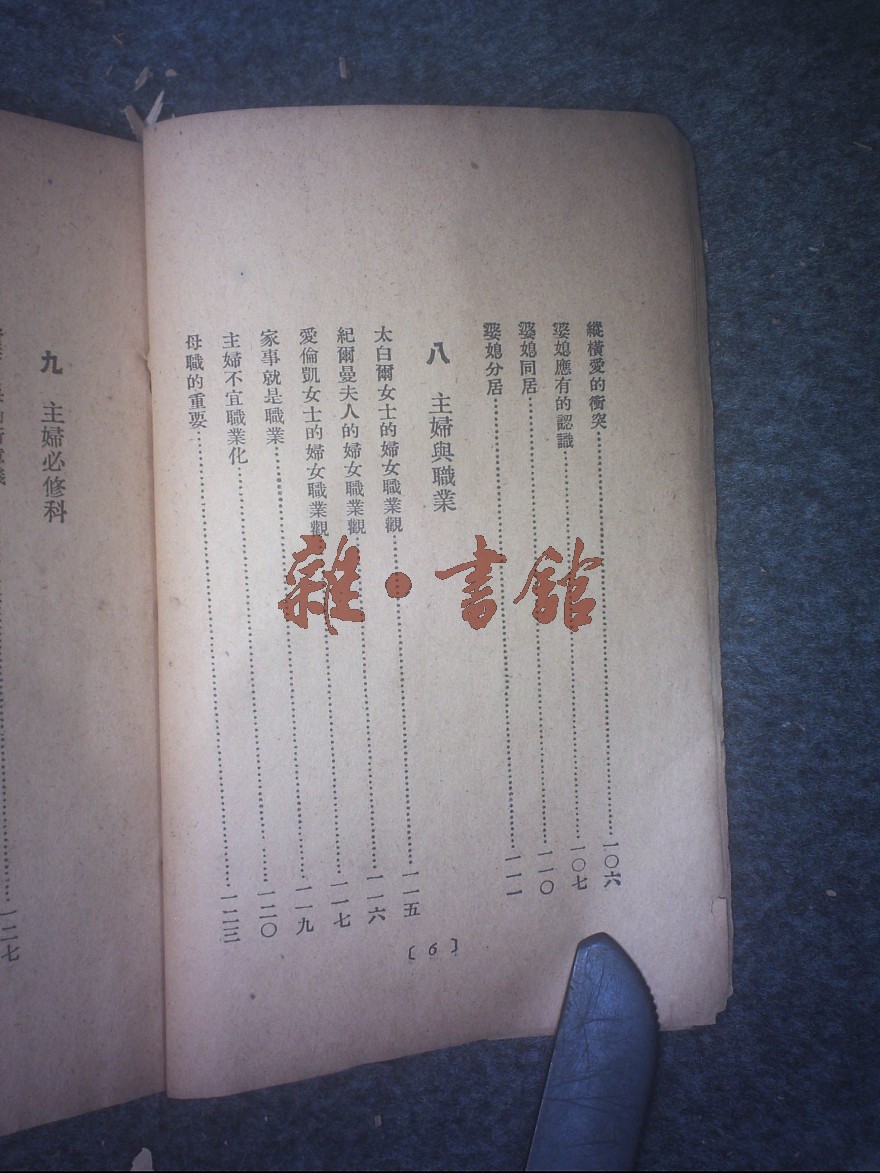 縱橫愛的衝突…………一〇六
婆媳應有的認識…………一〇七
婆媳同居…………一一〇
婆媳分居…………一一一
八 主婦與職業
太白爾女士的婦女職業觀…………一一五
紀爾曼夫人的婦女職業觀…………一一六
愛倫凱女士的婦女職業觀…………一一七
家事就是職業…………一一九
主婦不宜職業化…………一二〇
母職的重要…………一二三
〔6〕
九 主婦必修科
一二七
雜·書館